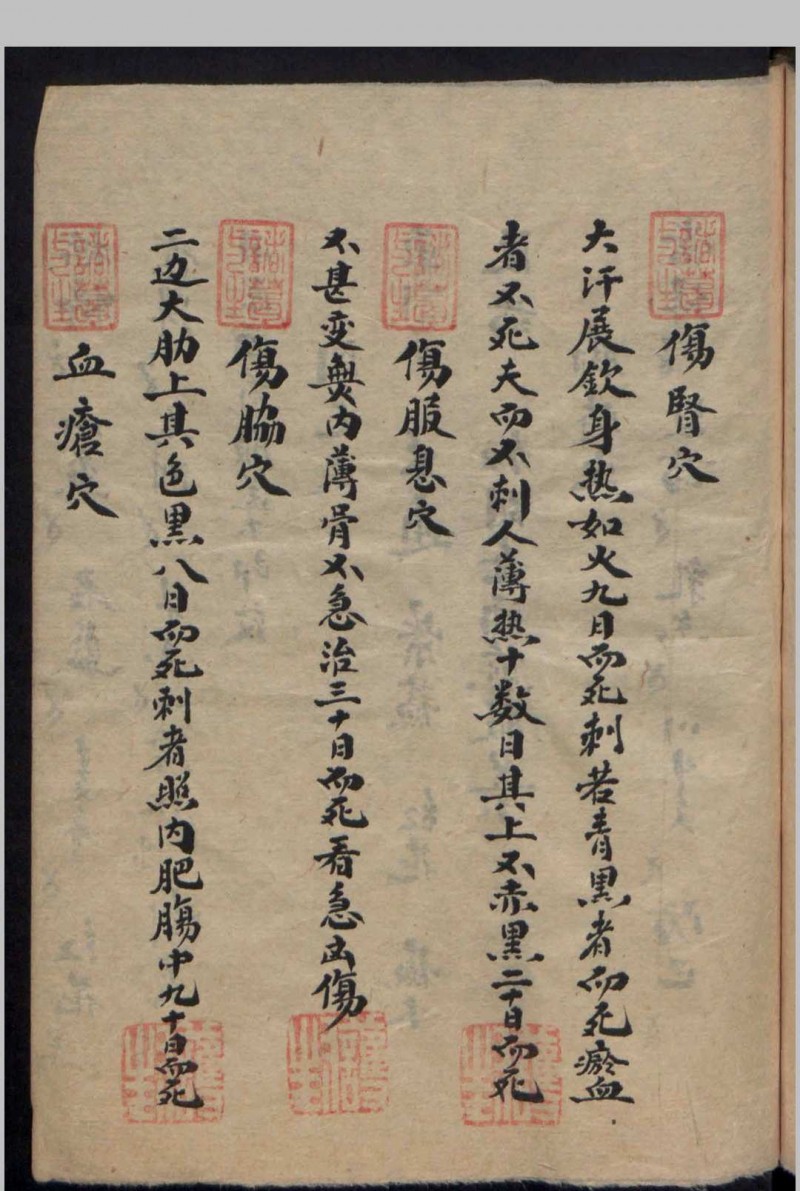 傷腎穴
大汗展欽身热如火九日而死刺若青黑者而死瘀血
者不死夫而不刺人薄热十数日其上不赤黑二十日而死
傷股息穴
不甚变無内薄骨不急治三十日而死看急凶傷
傷脇穴
二边大肋上其色黑八日而死刺者照内肥腸中九十日而死
血瘡穴